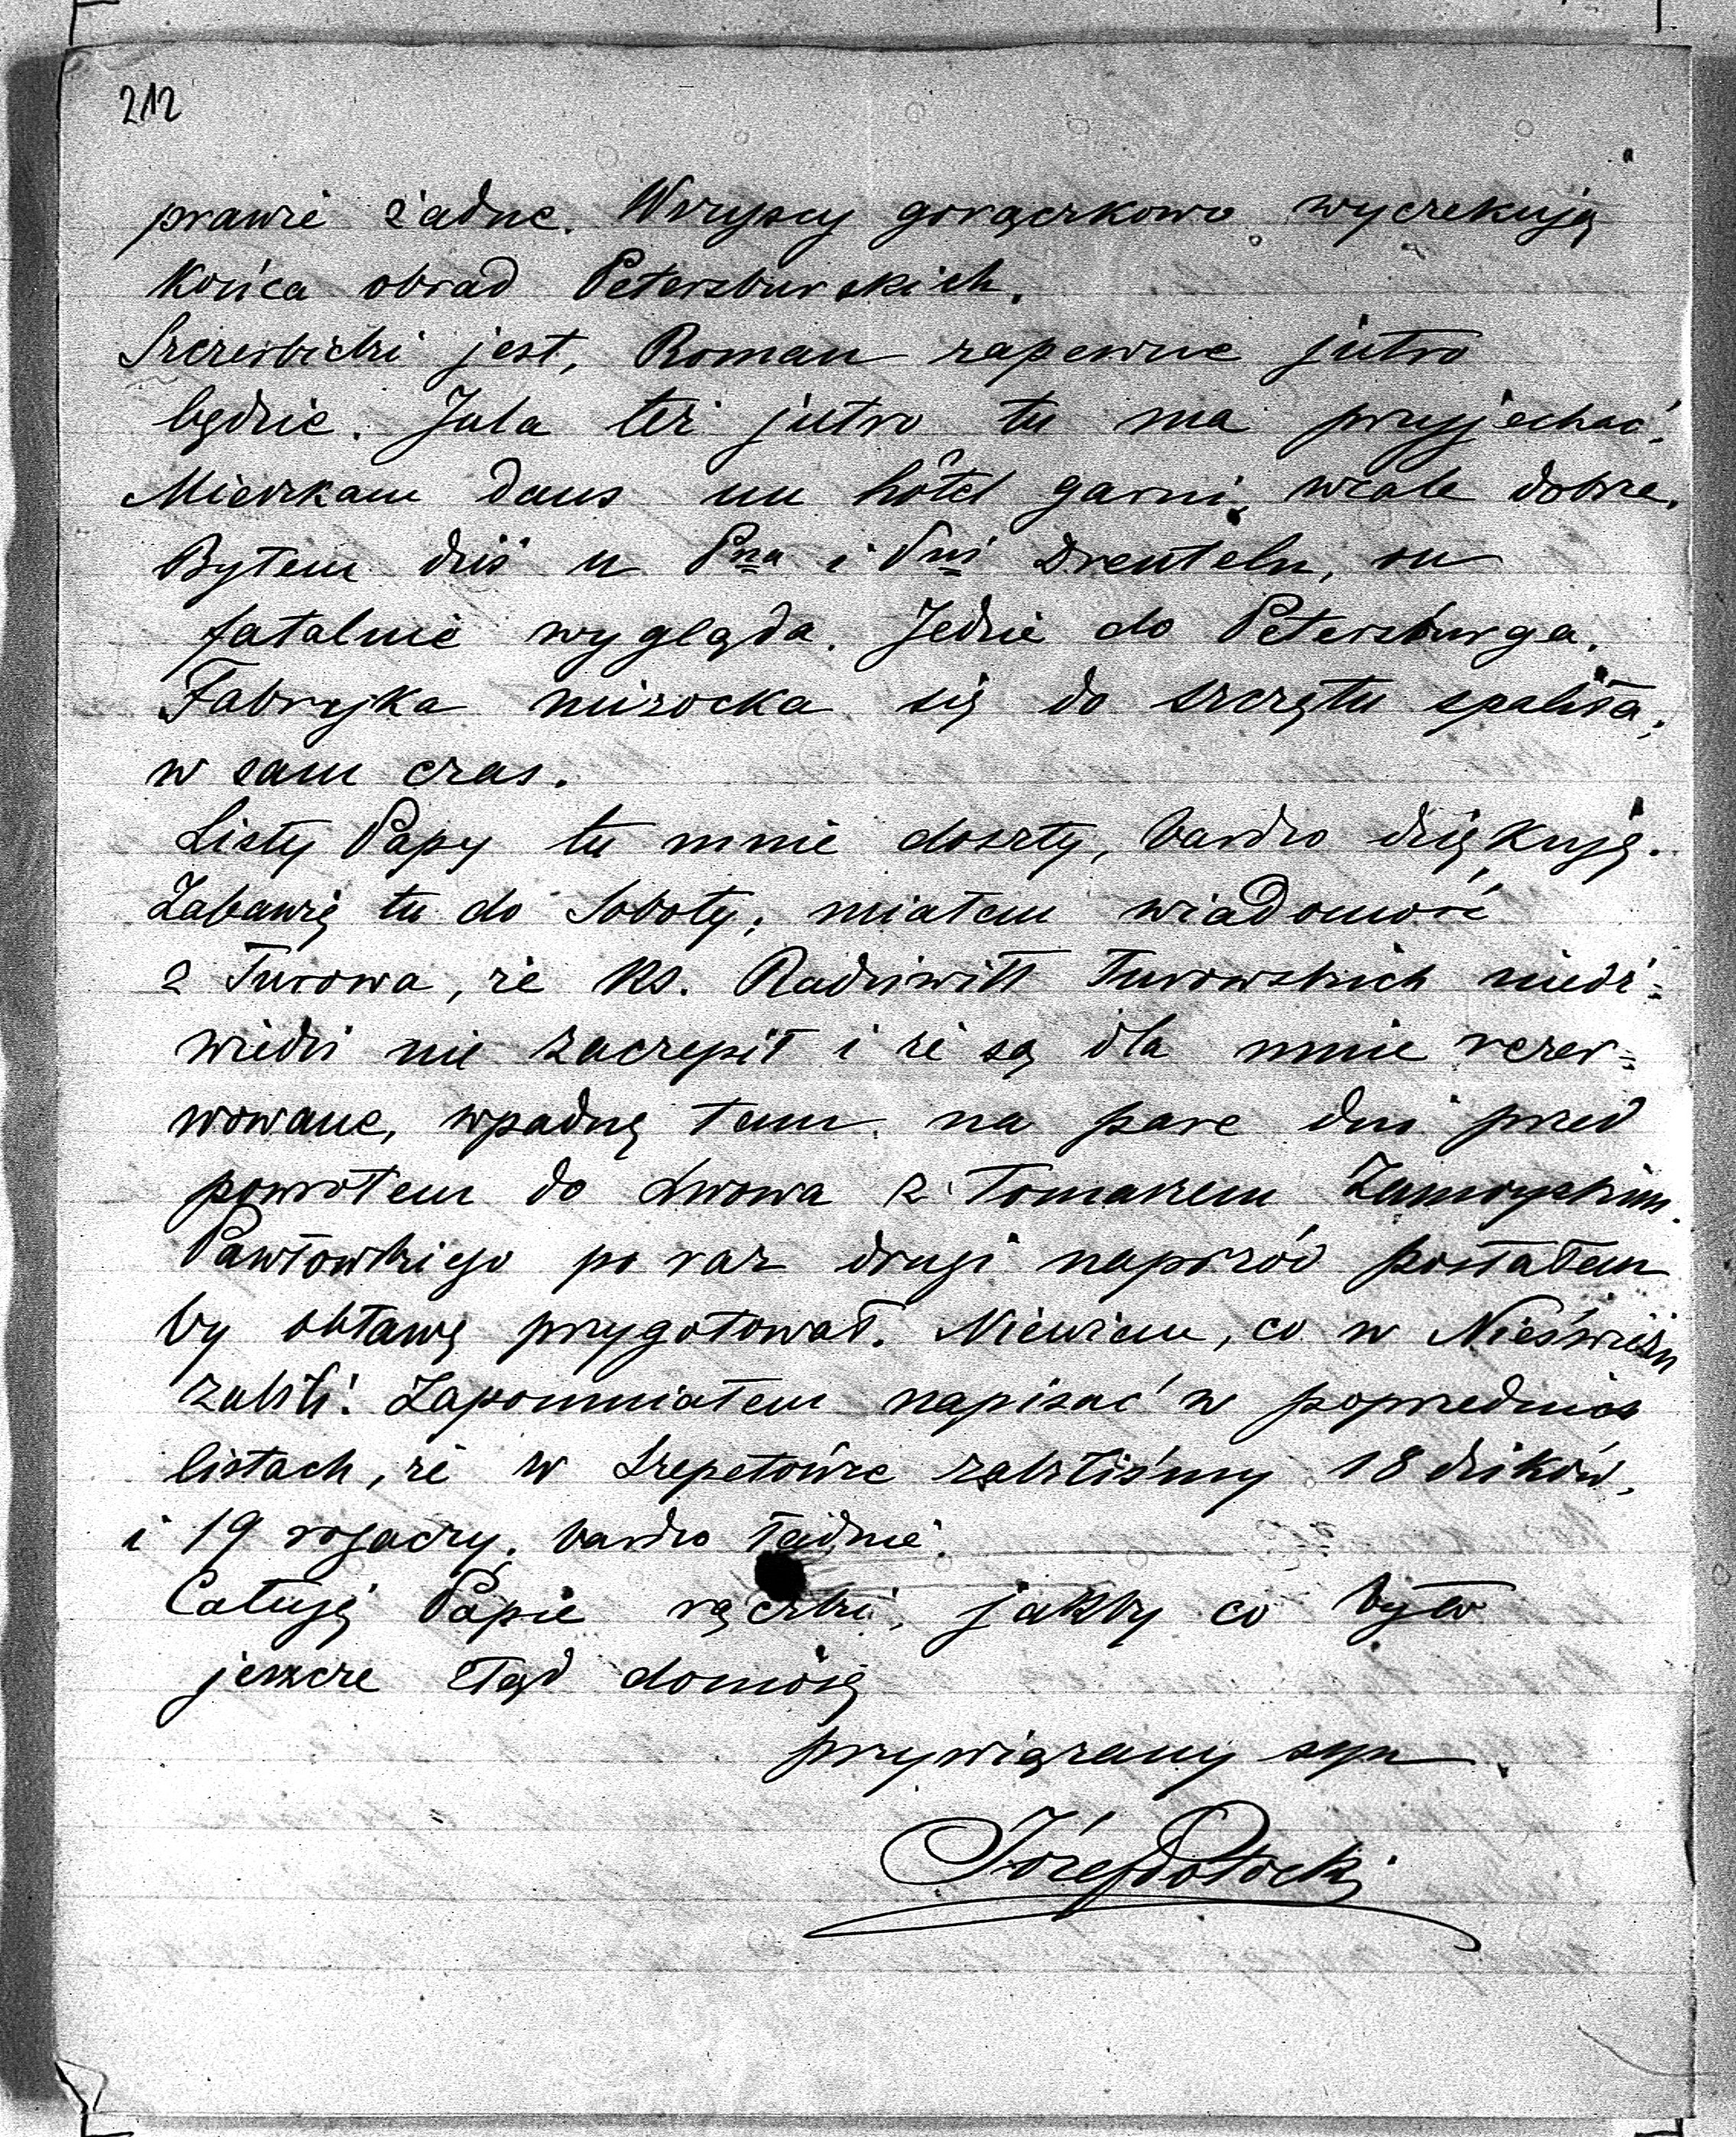 212
prawie żadne. Wszyscy gorączkowo wyczekują
Końca obrad Petersburskich.
Szczerbicki jest, Roman zapewne jutro
będzie. Jula też jutro tu ma przyjechać.
Mieszkam dans un hôtel garni, wcale dobrze.
Byłem dziś u Pna i Pni Drenteln, on
fatalnie wygląda. Jedzie do Petersburga.
Fabryka mizocka się do szczętu spaliła,
w sam czas.
Listy Papy tu mnie doszły, bardzo dziękuję.
Zabawię tu do Soboty; miałem wiadomość
z Turowa, że ks. Radziwiłł Turowskich niedź=
wiedzi nie zaczepił i że są dla mnie rezer=
wowane, wpadnę tam na parę dni przed
powrotem do Lwowa z Tomaszem Zamoyskim.
Pawłowskiego po raz drugi naprzód posłałem
by obławę przygotował. Niewiem, co w Nieświeżu
zabili. Zapomniałem napisać w poprzednich
listach, że w Szepetówce zabiliśmy 18 dzików,
i 19 rogaczy, bardzo ładnie.
Całuję Papie rączki, jakby co było
jeszcze ztąd doniosę
przywiązany syn
Józef Potocki